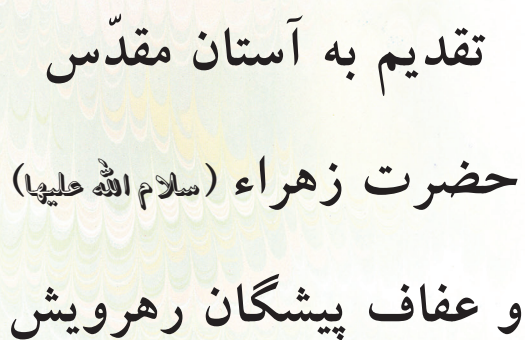 تقدیم به آستان مقدّس
حضرت زهراء (سلام الله علیها)
و عفاف پیشگان رهرویش